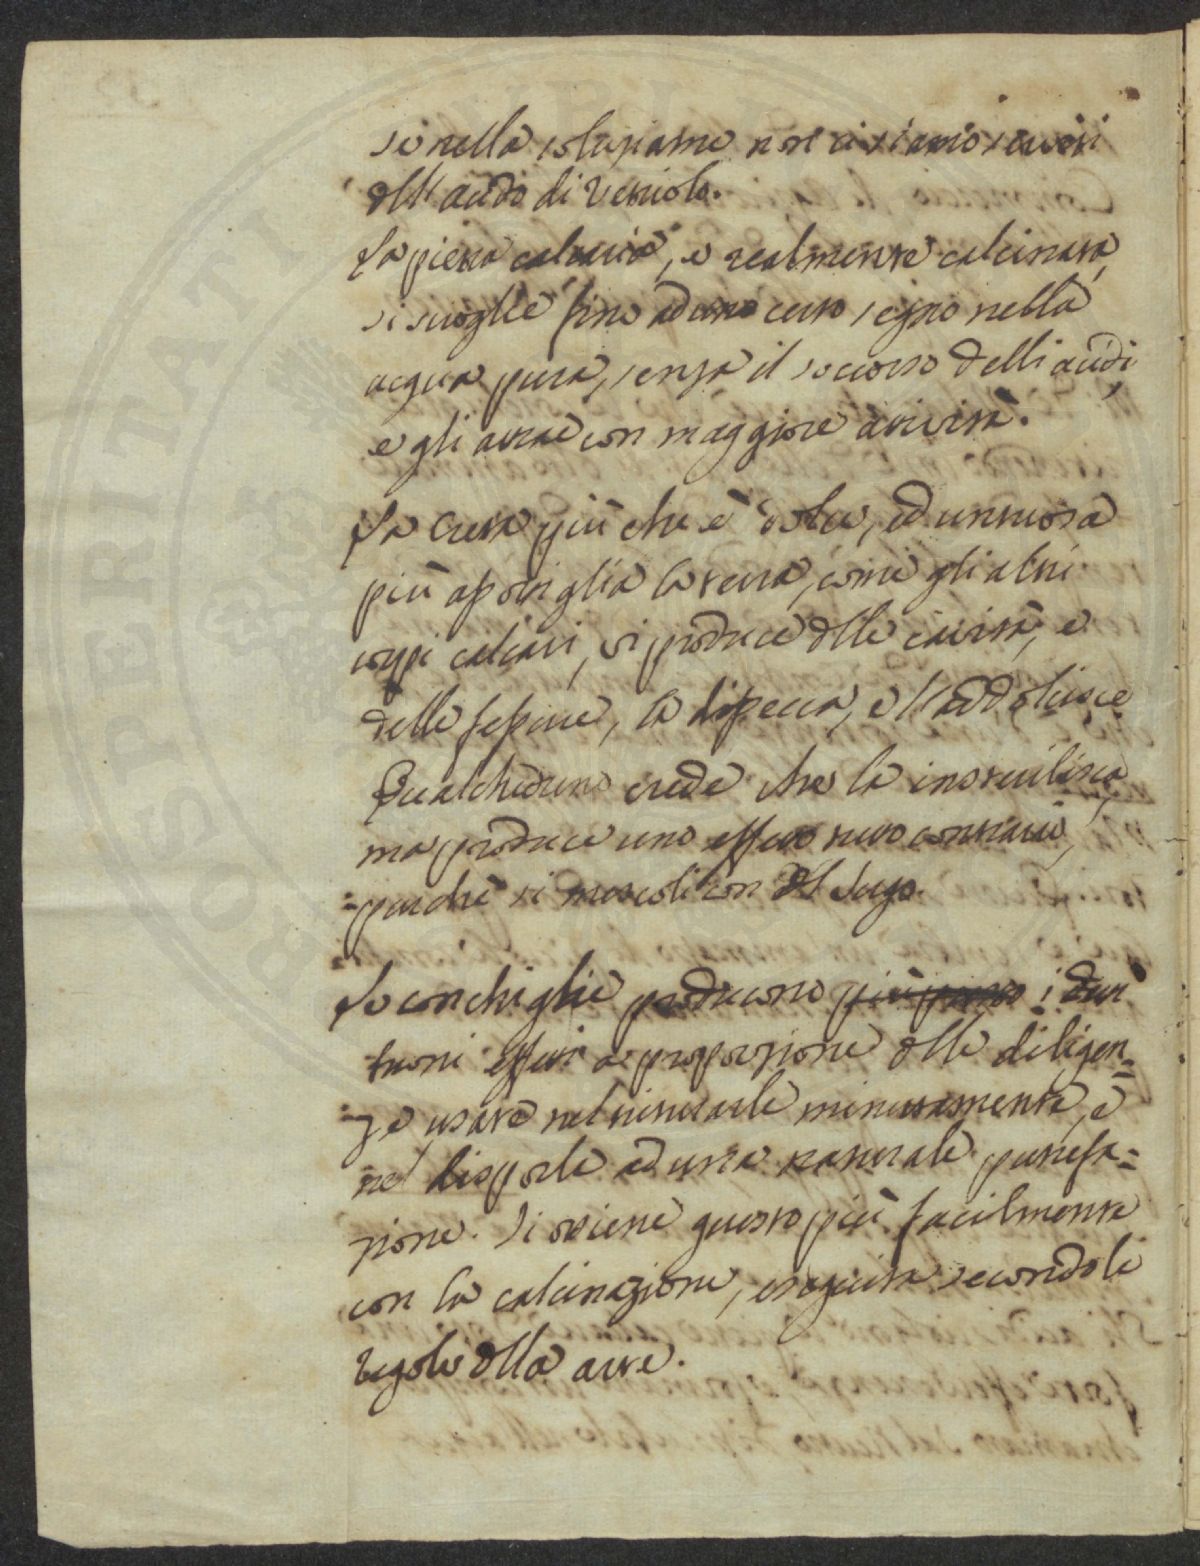 se nella soluzione non ci siamo serviti
dll' acido di Vetriolo.
La pietra calcaria, e realmente calcinata,
si scioglie fino ad uno certo segno nella
acqua pura, senza il soccorso delli acidi,
e gli attrae con maggiore attività.
La Creta più che è dolce, ed untuosa
più assottiglia la terra, come gli altri
corpi calcari, vi produce dlle cavità, e
delle fessure, la dissecca, e l'addolcisce
Qualcheduno crede che la insterilisca,
ma produce uno effetto tutto contrario,
purchè si mescoli con dl sugo.
Le conchiglie producono i
buoni effetti a proporzione dlle diligen=
=ze usate nel triturarle minutamente, e
nel disporle ad una naturale putrefa=
zione. Si ottiene questo più facilmente
con la calcinazione, eseguita secondo le
regole dlla arte.
PROSPERITATI